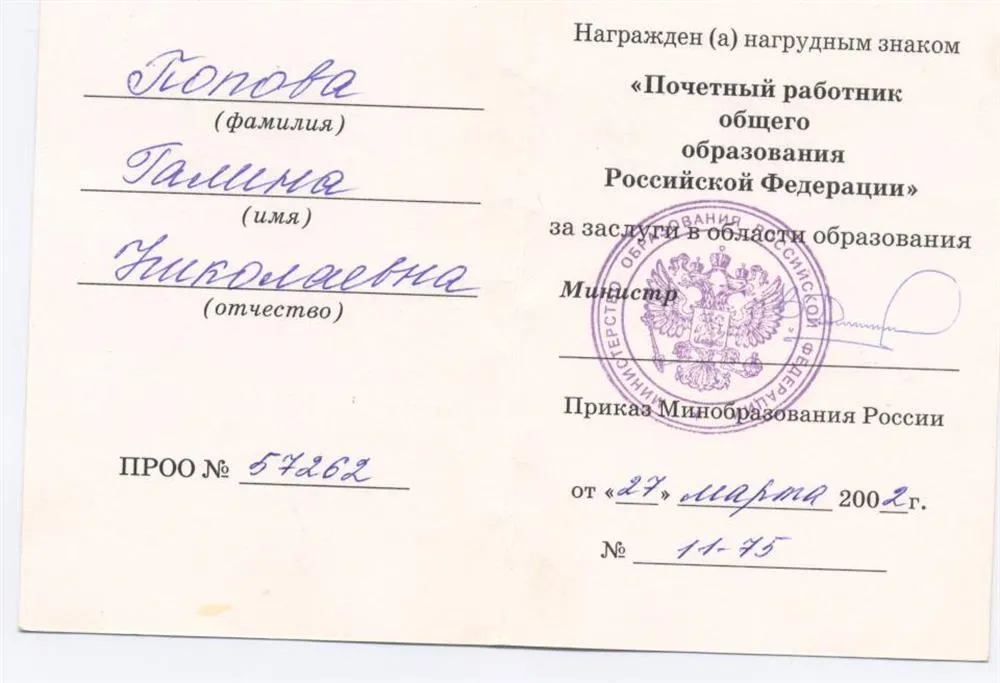 Попова
(фамилия)
Галина
(имя)
Николаевна
(отчество)
ПРОО № 57262
Награжден (а) нагрудным знаком
«Почетный работник
общего
образования
Российской Федерации»
за заслуги в области образования
Министр
МИНИСТЕРСТВО ОБРАЗОВАНИЯ РОССИЙСКОЙ ФЕДЕРАЦИИ
Приказ Минобразования России
от «27» марта 2002г.
№ 11-75